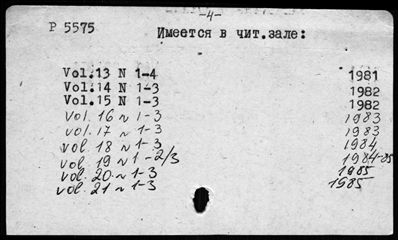 -4-
P 5575
Имеется в чит.зале:
Vol.13 N 1-4 1981
Vol.14 N 1-3 1982
Vol.15 N 1-3 1982
Vol. 16 N 1-3 1983
vol. 17 N 1-3 1983
vol 18 N 1-3 1984
vol 19 N 1-2/3 1984-85
vol. 20 N 1-3 1985
vol. 21 N 1-3 1985